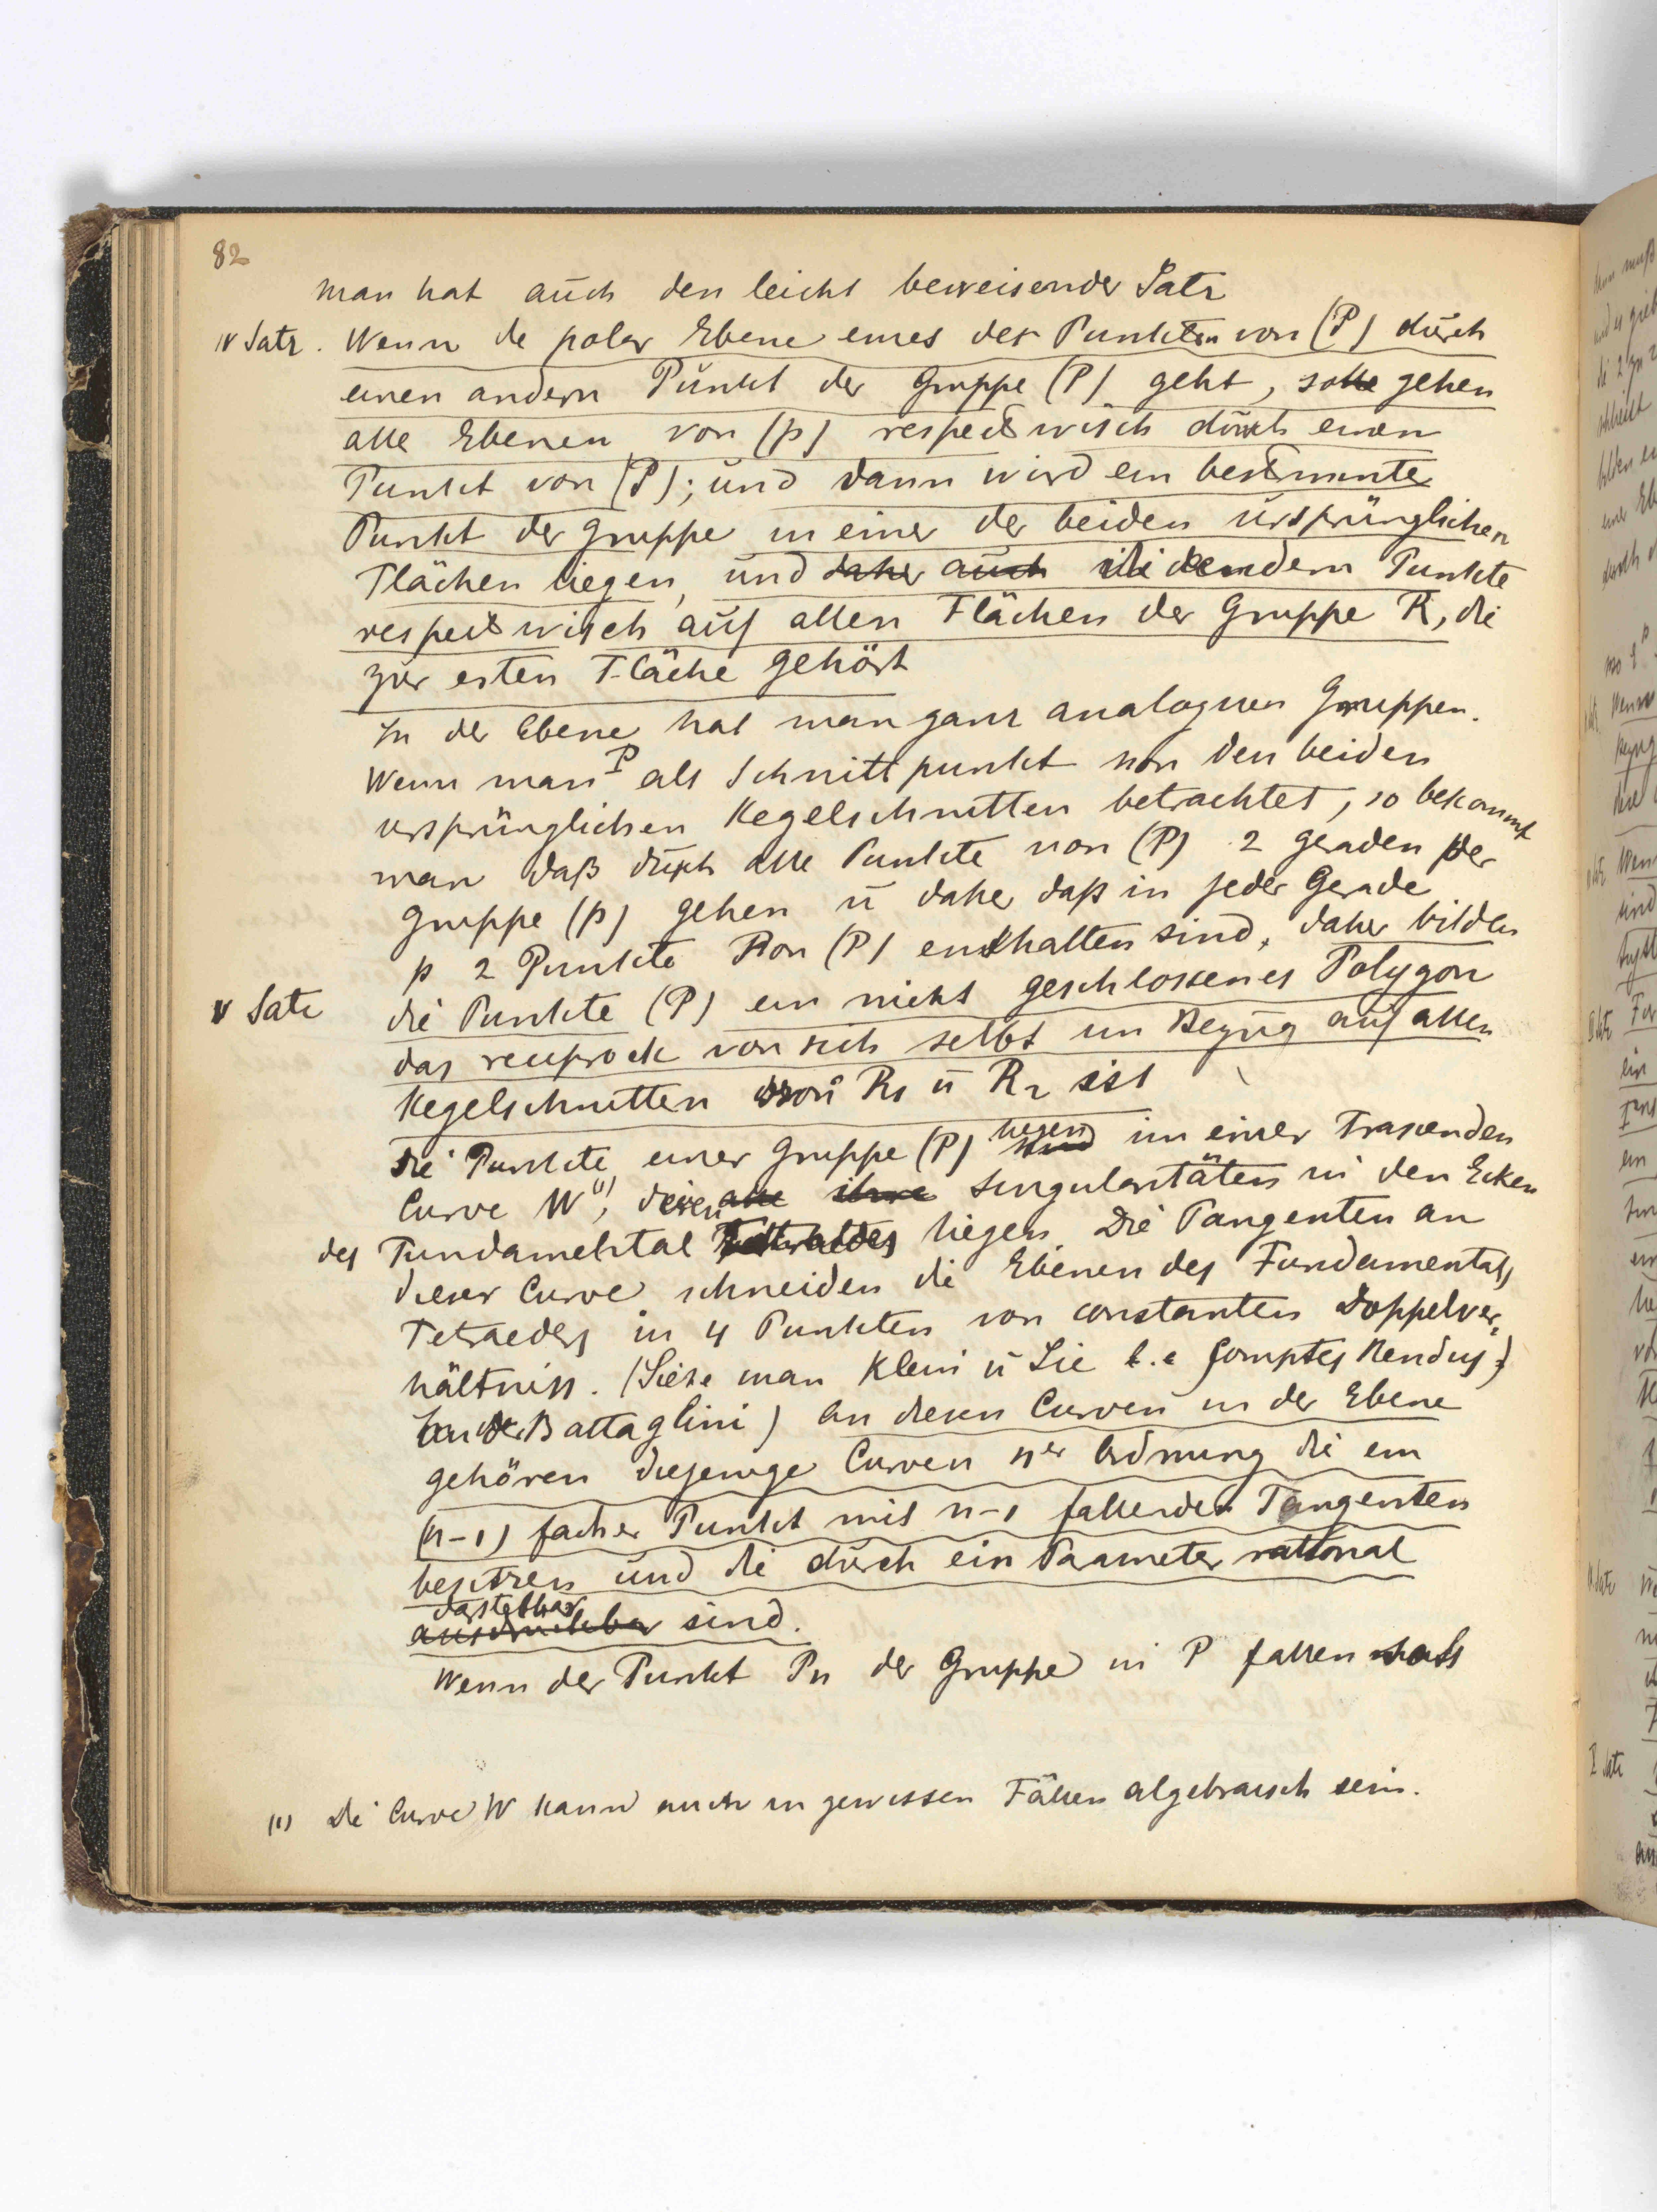 82
Man hat auch den leicht beweisender Satz
IV Satz. Wenn de polar Ebene eines der Punkten von (P) durch
einen andern Punkt der Gruppe (P) geht, so gehen
alle Ebenen von (p) respectwisch durch einen
Punkt von (P); und dann wird ein bestimmter
Punkt der Gruppe in einer der beiden ursprünglichen
Flächen liegen, und daher auch die andern Punkte
respectwisch auf allen Flächen der Gruppe R, die
zur ersten Fläche gehört
In der Ebene hat man ganz analoguen Gruppen.
Wenn man P als Schnittpunkt von den beiden
ursprünglichen Kegelschnitten betrachtet, so bekommt
man daß durch alle Punkte von (P) 2 geraden der
Gruppe (p) gehen u daher daß in jeder Gerade
p 2 Punkte von (P) enthalten sind, daher bilden
V Satz die Punkte (P) ein nicht geschlossenes Polygon
das reciprock von sich selbst im Bezug auf allen
Kegelschnitten von R1 u R2 ist
Die Punkte einer Gruppe (P) liegen sind im einer Trasenden
Curve W(1), deren alle ihre Singularitäten in den Ecken
des Fundamental Tetraedes liegen. Die Tangenten an
dieser Curve schneiden die Ebenen des Fundamentals
Tetraeders in 4 Punkten von constanten Doppelver=
hältniss. (Siehe man Klein u Lie Comptes Rendus;
Battaglini) An diesen Curven in der Ebene
gehören diejenige Curven ner Ordnung die ein
(n-1) facher Punkt mit n-1 fallenden Tangenten
besitzen und die durch ein Paameter rational
darstellbar
ausdruckbar sind.
Wenn der Punkt Pn der Gruppe in P fallen
(1) Die Curve W kann auch in gewissen Fällen algebraisch sein.